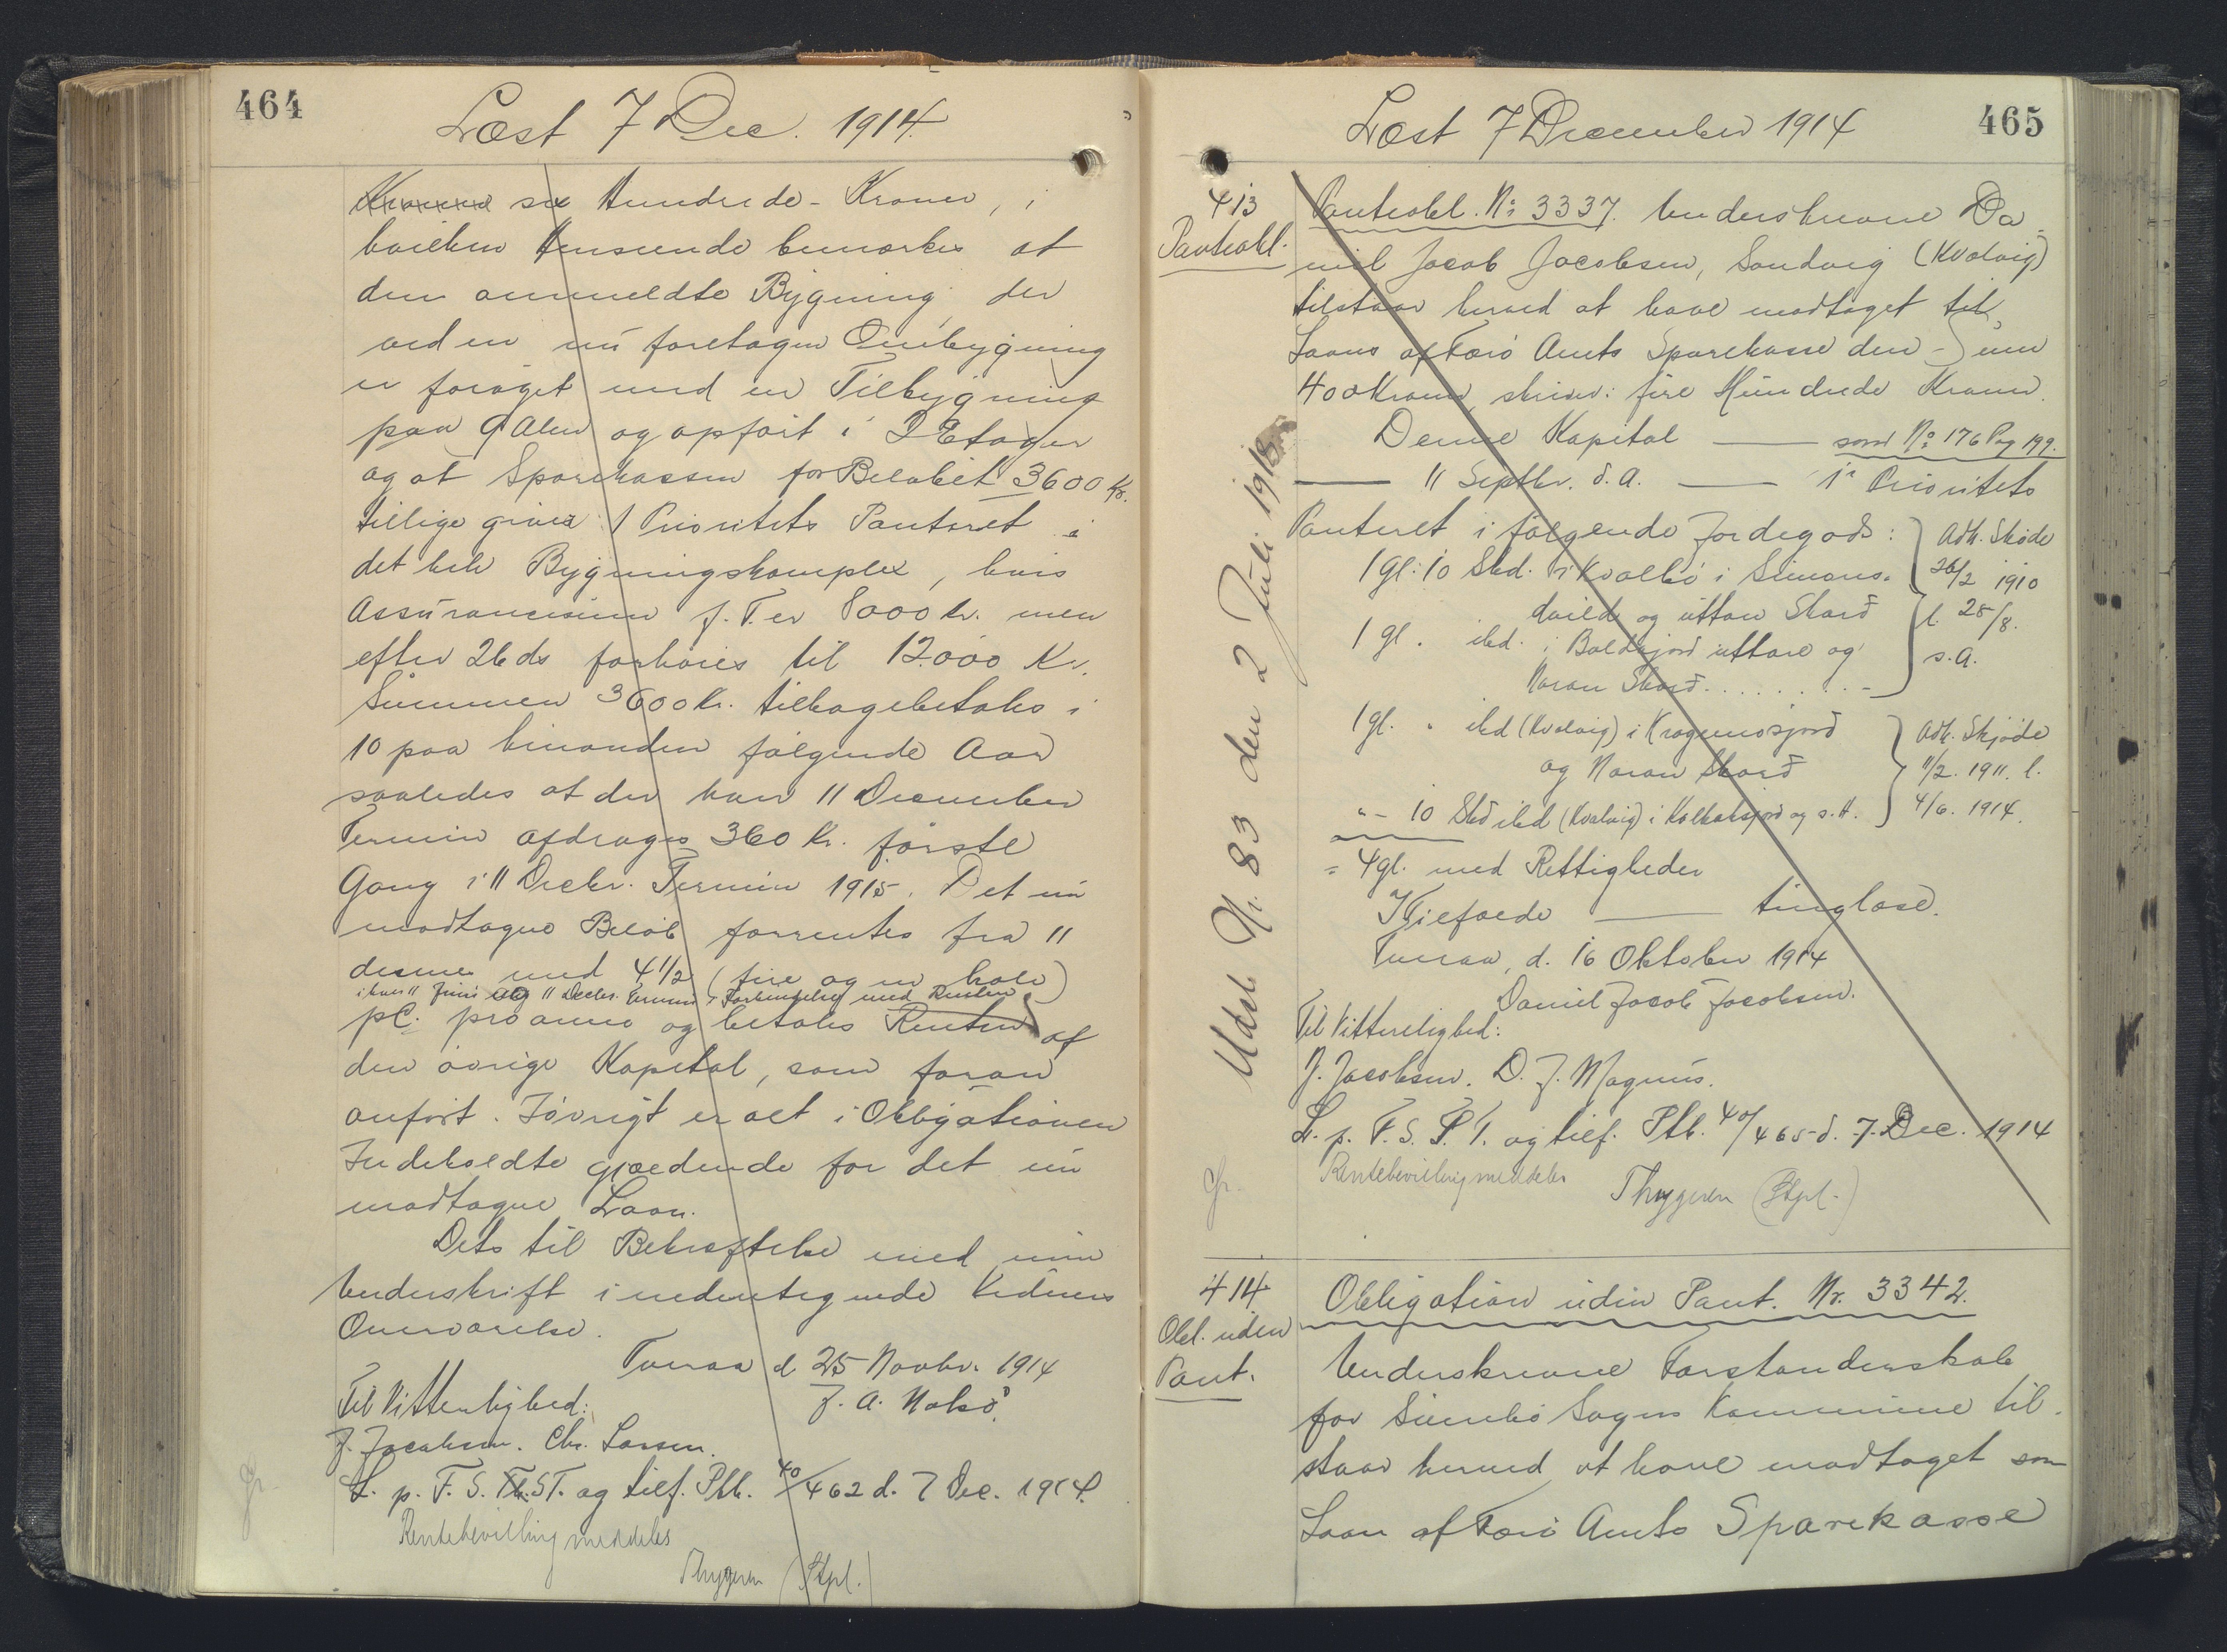 464
Læst 7 Dec. 1914.
Kroner sex Hundrede Kroner, i
hvilken Henseende bemærkes at
den anmeldte Bygning, der
ved en nú foretagen Ombygning
er forøget med en Tilbygning
paa 9 Alen og opført i 2 Etager
og at Sparekassen for Beløbet 3600 Kr.
tillige gives 1 Prioritets Panteret i
det hele Bygningskomplex, hvis
Assúrancesum p. T. er 8000 kr. men
efter 26 ds forhøies til 12.000 Kr.
Summen 3600 kr. tilbagebetales i
10 paa hinanden følgende Aar
saaledes at der hver 11 December
Termin afdrages 360 kr. første
Gang i 11 Decbr. Termin 1915. Det nú
modtagne Beløb forrentes fra 11
dennes med 4 1/2 (fire og en halv)
i hver 11 Júni og 11 Decbr. Termin i Forbindelse med Renten
pC. pro anno og betales Renten af
den øvrige Kapital, som foran
anført. Iøvrigt er alt i Obligationen
Indeholdte gjældende for det nú
modtagne Laan.
Dets til Bekræftelse med min
Underskrift i undertegnede Vidners
Overværelse.
Tveraa d 25 Novbr. 1914
Til Vitterlighed:
J. A. Nolsø.
J. Jacobsen. Chr. Larsen.
L. p. F. S. Th. ST. og tilf. Ptb. 40/462 d. 7 Dec. 1914.
Rentebevilling meddeles
Thygesen (Stpl.)
465
Læst 7 December 1914
413
Panteobl.
Panteobl. No 3337. Underskrevne Da-
niel Jacob Jacobsen, Sandvig (Kvalvig)
tilstaar herved at have modtaget til
Laans af Færø Amts Sparekasse den Sum
400 Kroner, skriver: fire Hundrede Kroner.
Denne Kapital — som No 176 Pag 199.
— 11 Septbr. d. A. — 1ns Prioritets
Panteret i følgende Jordegods:
1 gl: 10 Skd. i Kvalbø i Simons-
dúild og úttan Skarð
Adk. Skøde
26/2 1910
l. 28/8.
s. A.
1 gl. ibd. i Baldsjord úttare og
Noran Skarð
1 gl. " ibd (Kvalvig) i Kragúnosjord
og Noran Skarð
Adk. Skjøde
11/2. 1911. l.
4/6. 1914.
" - 10 Skd ibd (Kvalvig) i Kolbaksjord og s. A.
= 4 gl. med Rettigheder
I Tilfælde — tinglæse.
Tveraa, d. 16 Oktober 1914
Daniel Jacob Jacobsen.
Til Vitterlighed:
J. Jacobsen. D. J. Magnús.
L. p. F. S. T. og tilf. Ptb. 40/465 d. 7. Dec. 1914
Rentebevilling meddeles
Thygesen (Stpl.)
Udsl. Nr. 83 den 2 Júli 1918
414
Obl. uden
Pant.
Obligation uden Pant. Nr. 3342.
Underskrevne Forstanderskab
for Sumbø Sogns Kommune til-
staar herved at have modtaget som
Laan af Færø Amts Sparekasse